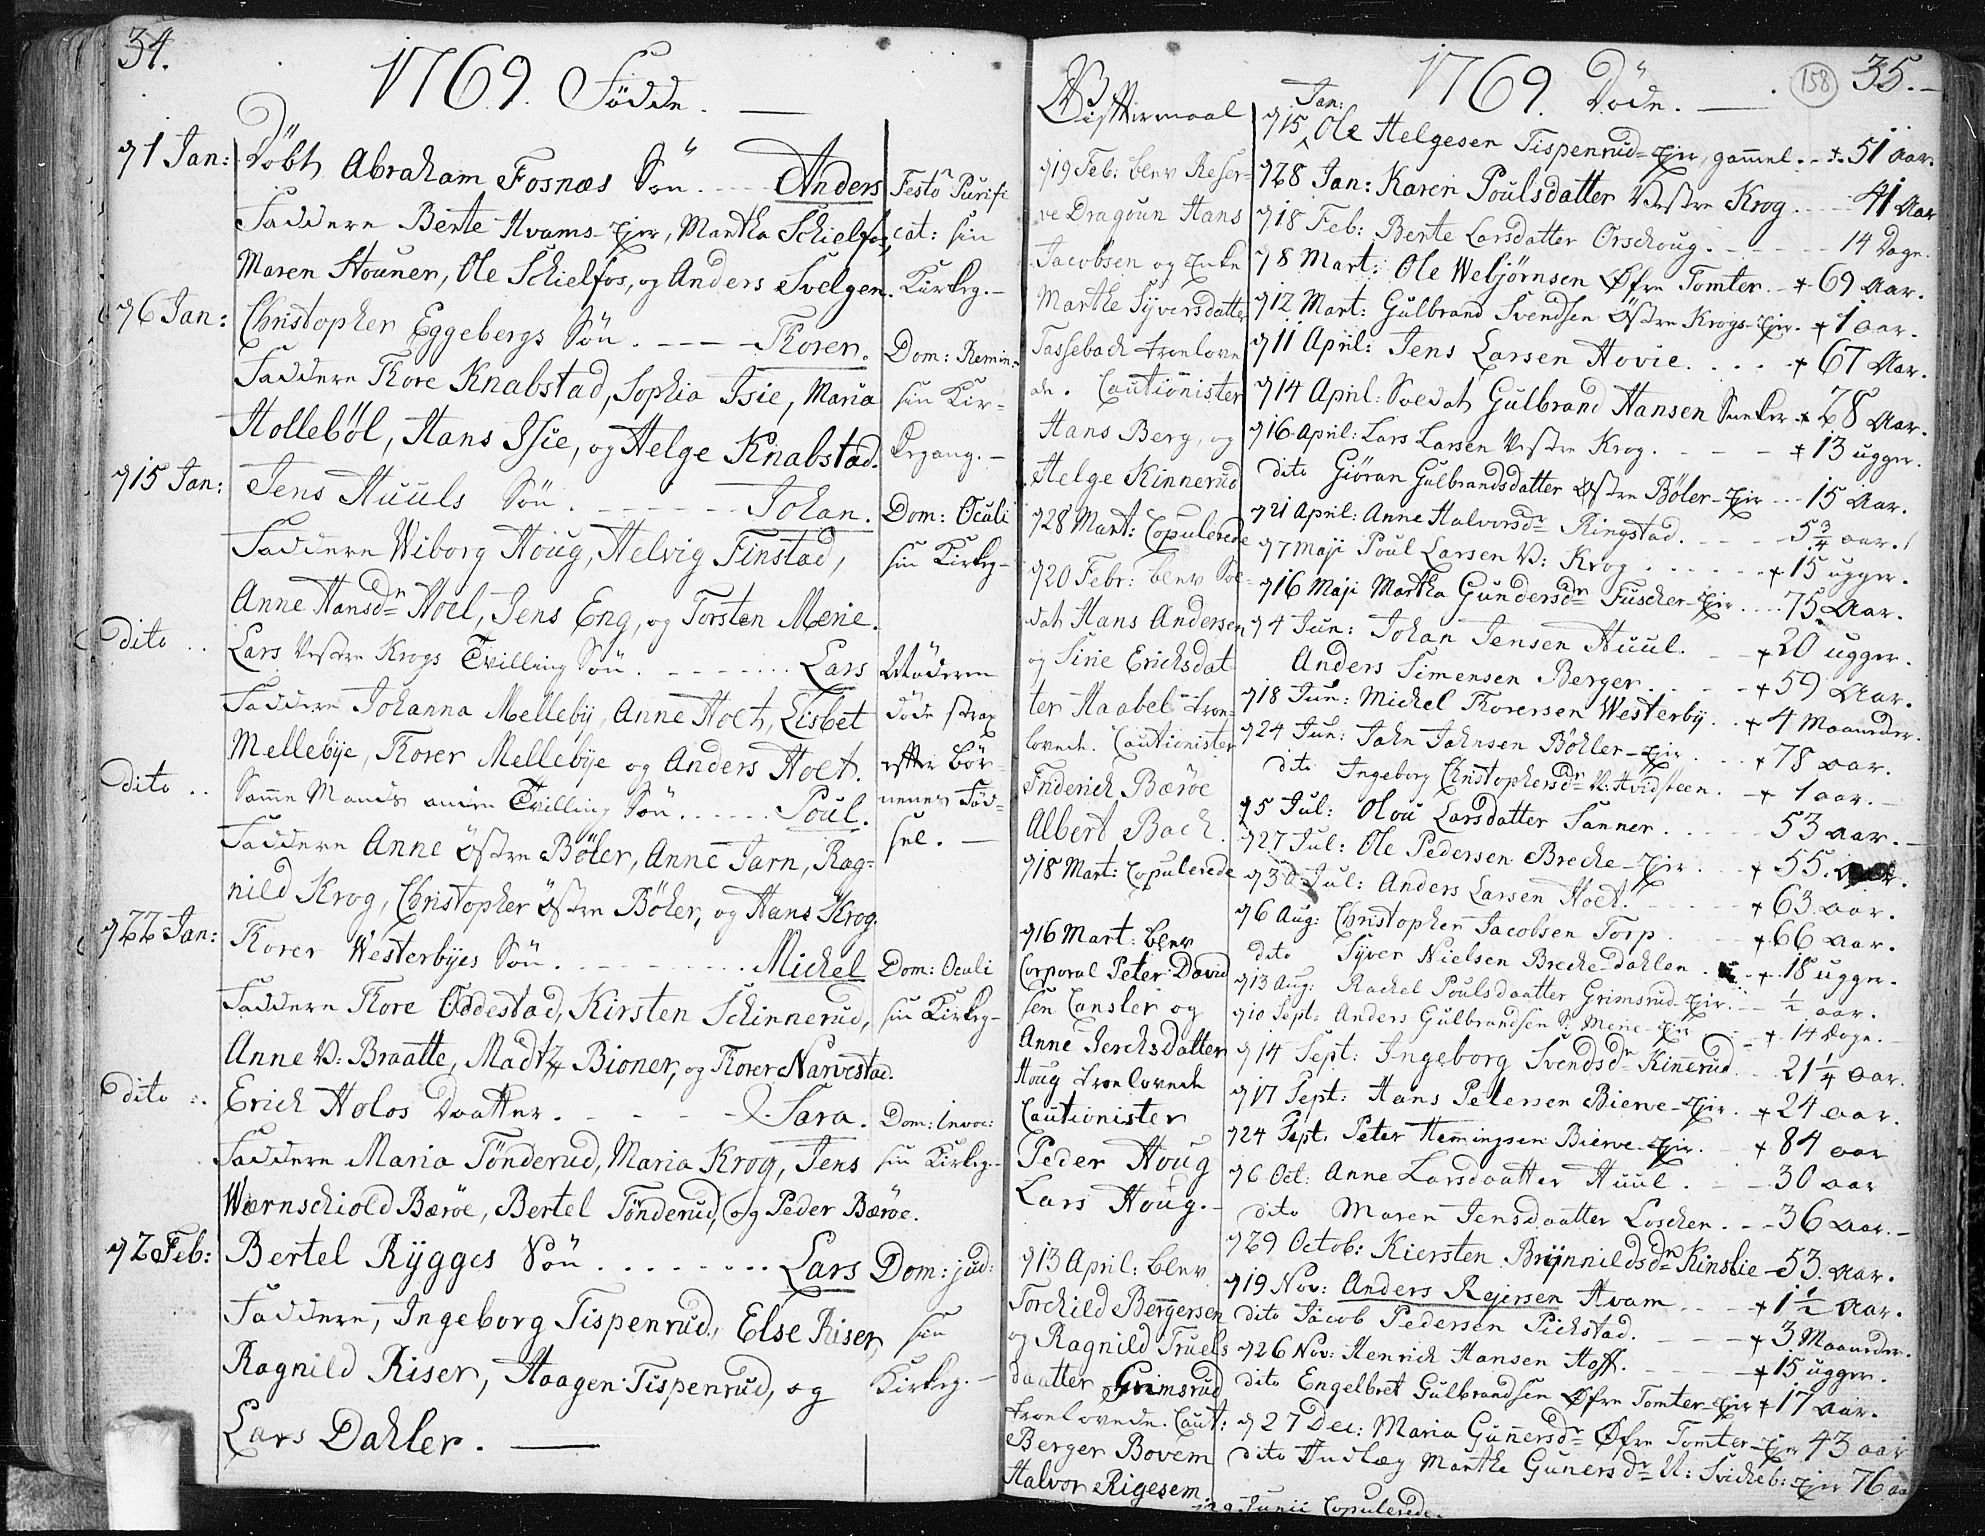 34.
1769. Födde.
71 Jan: Döbt Abraham Fosnæs Sön. Anders
Faddere Berte Hvams-Eier, Martha Schielfos,
Maren Houner, Ole Schielfos, og Anders Svelgen.
Festo Purifi
cat: sin
Kirkeg.
76 Jan: Christopher Eggebergs Sön. Thorer.
Faddere Thore Knabstad, Sophia Isie, Maria
Holleböl, Hans Isie, og Helge Knabstad.
Dom: Remin:
sin Kir-
kegang.
715 Jan: Jens Huuls Sön. Johan.
Faddere Wiborg Houg, Helvig Finstad,
Anne Hansdr Hoel, Jens Eng, og Torsten Merie.
Dom: Oculi
sin Kirkeg
dito .. Lars Vestre Krogs Tvilling Sön. Lars
Faddere Johanna Melleby, Anne Hoet, Lisbet
Mellebye, Thorer Mellebye og Anders Hoet.
Moderen
döde strax
efter Bör-
nenes Föd-
sel.
dito .. Samme Mands anden Tvilling Sön. Poul.
Faddere Anne Östre Böler, Anne Jarn, Rag-
nild Krog, Christopher Östre Böler, og Hans Krog
722 Jan: Thorer Westerbyes Sön. Michel
Faddere Thore Oddestad, Kirsten Schinnerud,
Anne V: Braatte, Madtz Bioner, og Thorer Narvestad.
Dom: Oculi
sin Kirkeg
dito .. Erich Holos Daatter. Sara.
Faddere Maria Tönderud, Maria Krog, Jens
Wernschiold Bæröe, Bertel Tönderud, og Peder Bæröe.
Dom: Invoc:
sin Kirkeg.
72 Feb: Bertel Rygges Sön. Lars
Faddere, Ingeborg Tispenrud, Else Riser,
Ragnild Riser, Haagen Tispenrud, og
Lars Dahler.
Dom: jud:
sin
Kirkeg.
35.
158
1769. Döde.
Bisttermaal
719 Feb: blev Reser-
ve Dragoun Hans
Jacobsen og Enke
Marthe Syversdatter
Tassebach troelove
de. Cautionister
Hans Berg, og
Helge Kinnerud
728 Mart: Copulerede
720 Febr: blev Sol-
dat Hans Andersen
og Sirie Erichsdat
ter Haabel troe-
lovede. Cautionister
Friderich Bæröe
Albert Bach.
718 Mart: Copulerede
716 Mart: blev
Corporal Peter David
sen Cansler og
Anne Jerchsdatter
Houg troelovede
Cautionister
Peder Houg
Lars Houg.
713 April: blev
Torchild Bergersen
og Ragnild Truels
daatter Grimsrud
troelovede. Caut:
Berger Bovem
Halvor Rigesem.
729 Junii Copulerede
Jan:
715 Ole Helgesen Tispenrud-Eier, gammel. 51 Aar.
728 Jan: Karen Poulsdatter Vestre Krog 41 Aar
718 Feb: Berte Larsdatter Orschoug. 14 Dage.
78 Mart: Ole Webjörnsen Øfre Tomter. 69 Aar.
712 Mart: Gulbrand Svendsen Östre Krogs-Eier. 1 aar.
711 April: Jens Larsen Hovie. 67 Aar.
714 April: Soldat Gulbrand Hansen 28 Aar.
716 April: Lars Larsen Vestre Krog. 13 ugger.
dito Giöran Gulbrandsdatter Østre Böler-Eier 15 Aar.
721 April: Anne Halvorsdr Ringstad. 5 3/4 aar.
77 Maji Poul Larsen V: Krog 15 ugger.
716 Maji Martha Gundersdr Fuscher-Eier 75 Aar.
74 Jun: Johan Jensen Huul. 20 ugger.
Anders Simensen Berger 59 Aar.
718 Jun: Michel Thorersen Westerby 4 Maaneder.
724 Jun: Jahn Jahnsen Böhler-Eier 78 aar.
dito Ingeborg Christophersdr N: Hvidsteen. 1 aar.
75 Jul: Olou Larsdatter Sanner. 53 aar.
727 Jul: Ole Pedersen Breche-Eier. 55.
730 Jul: Anders Larsen Hoet. 63 aar.
76 Aug: Christopher Jacobsen Torp. 66 Aar.
dito Syver Nielsen Breche-dahlen. 18 ugger.
713 Aug: Rachel Poulsdaatter Grimsrud-Eier. 1/2 aar.
710 Sept: Anders Gulbrandsen Merie-Eier 14 Dage.
714 Sept: Ingeborg Svendsdr Kinnerud. 21 1/4 aar.
717 Sept: Hans Petersen Bierve-Eier. 24 aar.
724 Sept: Peter Hemmingsen Bierve-Eier. 84 aar
76 Oct: Anne Larsdaatter Huul. 30 aar
dito Maren Jensdaatter Loschen. 36 Aar.
729 Octob: Kiersten Brynnildsdr Kinslie 53 Aar.
719 Nov: Anders Rejersen Hvam. 1 1/2 Aar.
dito Jacob Pedersen Pichstad. 3 Maaneder.
726 Nov: Henrich Hansen Hoff. 15 ugger.
dito Engelbret Gulbrandsen Øfre Tomter-Eier 17 aar.
727 Dec: Maria Gunnersdr Øfre Tomter-Eier 43 aar
dito Marthe Gunersdr N: Svicheb: Eier 76 aa